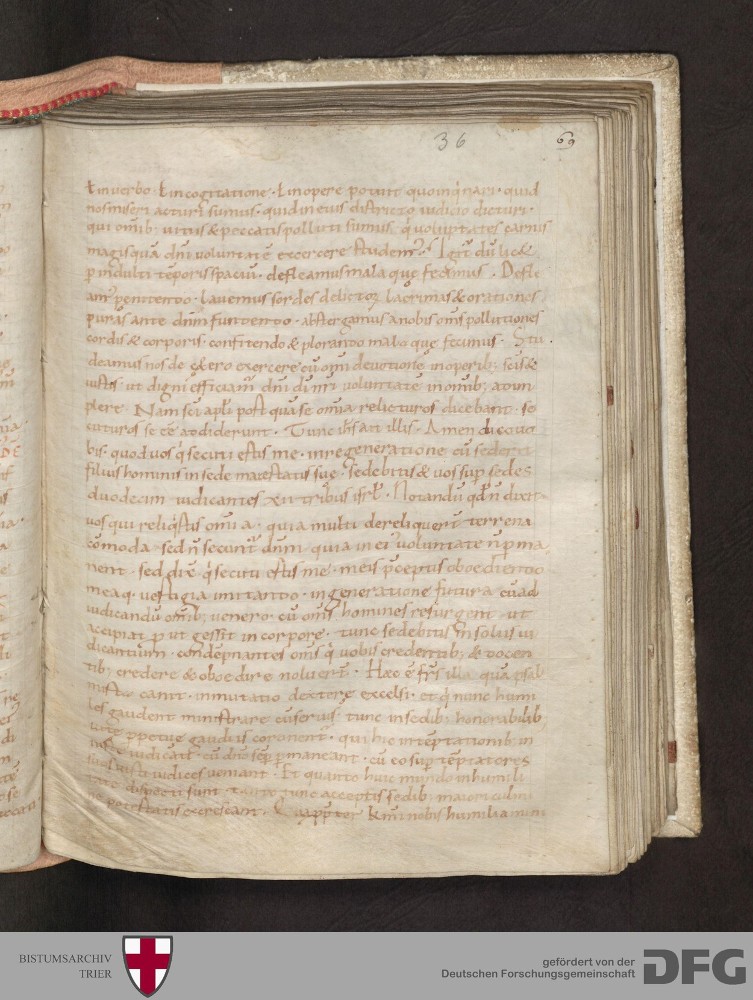 36 69
& in uerbo & in cogitatione · & in opere potuit quoinq̄nari · quid
nos miseri acturi sumus · quid in eius districto iudicio dicturi ·
qui omīb; uitiis & peccatis polluti sumus · q̄ uoluptates carnis
magis quā dn̄i uoluntatē exercere studem᷒ · dū lic&
p indulti tēporis spaciū · defleamus mala que fecimus · Defle
am᷒ penitendo · lauemus sordes delictoꝝ lacrimas & orationes
puras ante dn̄m fundendo · abstergamus a nobis om̄s pollutiones
cordis & corporis · confitendo & plorando mala que fecimus · Stu
deamus nos de c&ero exercere cū om̄i deuotione in operib; sc̄is &
iustis · ut digni efficiam᷒ dn̄i dī nr̄i uoluntatē in omīb; adim
plere · Nam sc̄i apl̄i post quā se omnia relicturos dicebant · se
cuturos se eē addiderunt · Tunc ih̄s ait illis · Amen dico uo
bis · quod uos q̄ secuti estis me · in regeneratione cū sederit
filius hominis in sede maiestatis sue · sedebitis & uos sup sedes
duodecim iudicantes xii tribus isrl̄ · Notandū qd̄ n̄ dixit
uos qui reliq̄stis omnia · quia multi dereliquer̄t terrena
cōmoda · sed n̄ secunt᷒ dn̄m quia in ei᷒ uoluntate n̄ pma
nent · sed dix̄ · q̄ secuti estis me · meis p̄ceptis oboediendo
meaq· uestigia imitando · in generatione futura cū ad
iudicandū omīb; uenero · cū om̄s homines resurgent · ut
accipiat p ut gessit in corpore · tunc sedebitis in solus iu
dicantium · condēpnantes om̄s q̄ uobis credentib; & docen
tib; credere & oboedire noluer̄t · Haec ē fr̄s illa quā psal
mista canit · inmutatio dextere excelsi · et q̄ nunc humi
les gaudent ministrare cū seruis · tunc in sedib; honorabilib;
uite ppetue gaudiis coronent᷒ · qui hic in tēptationib; in
iuste iudicati cū dn̄o sēp pmaneant · cū eo sup tēptatores
suos iusti iudices ueniant · Et quanto huic mundo in humili
tate dispecti sunt · tanto tunc acceptis sedib; maiori culmi
ne potestatis excrescant · Quappter km̄i nobis humilia
BISTUMSARCHIV
TRIER
gefördert von der
Deutschen Forschungsgemeinschaft
DFG